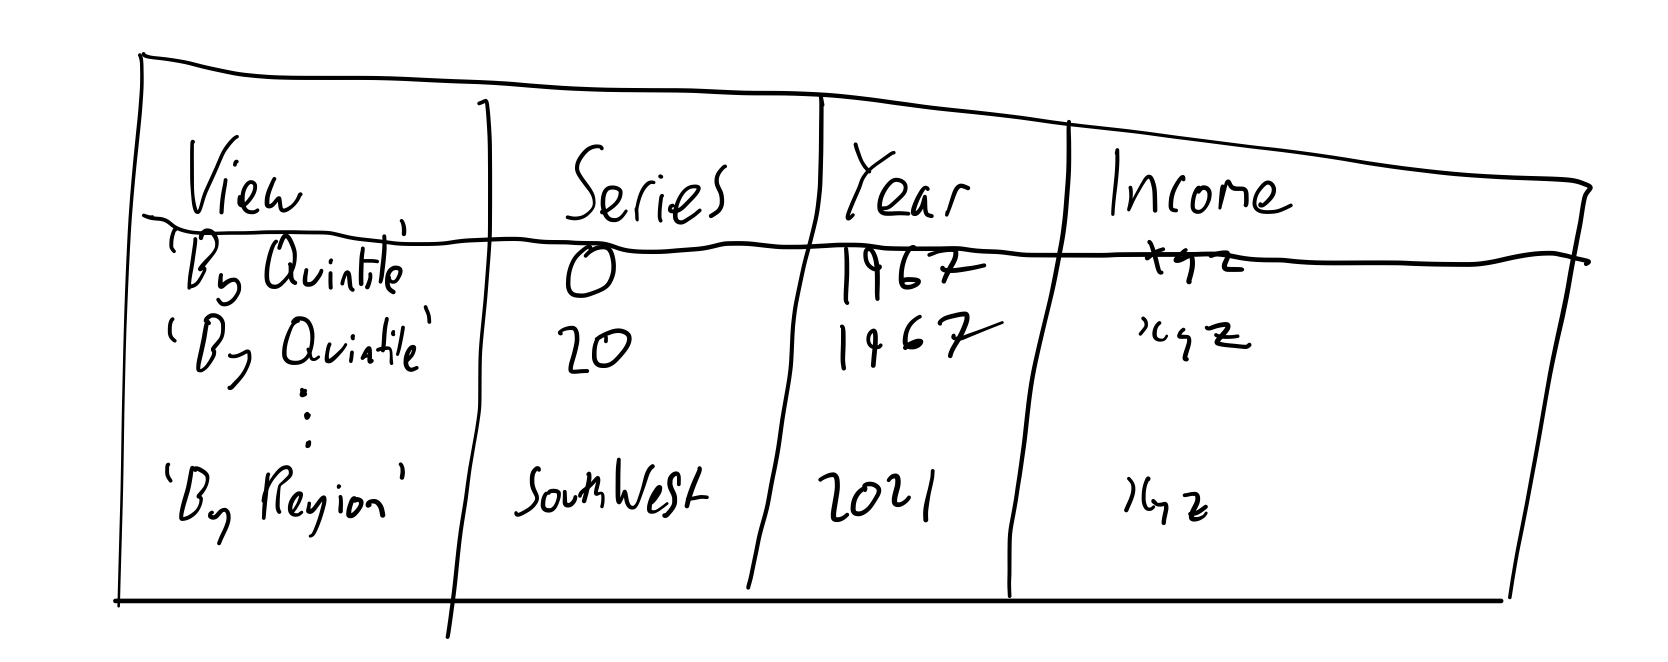 View Series Year Income
'By Quintile' 0 1967 xyz
'By Quintile' 20 1967 xyz
⋮
'By Region' SouthWest 2021 xyz